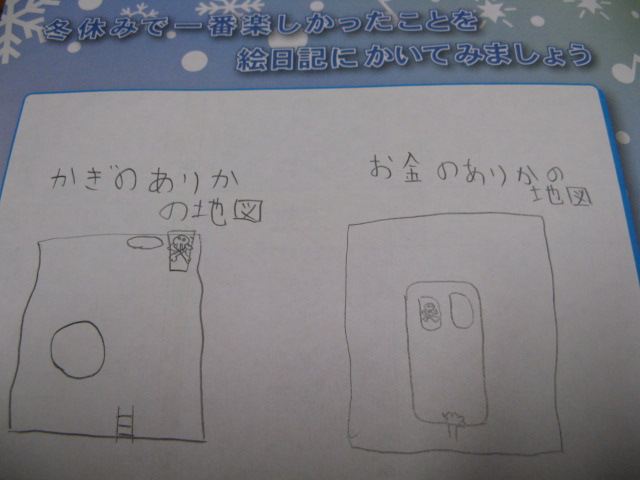 冬休みで一番楽しかったことを
絵日記にかいてみましょう
かぎのありか
の地図
お金のありかの
地図